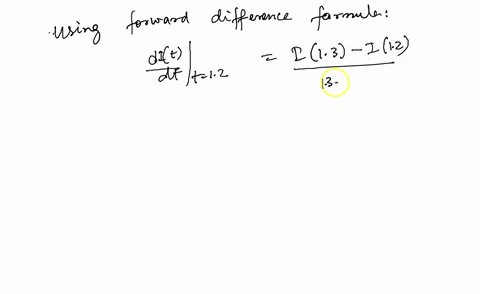 Using forward difference formula:
dI(t)/dt |t=1.2 = I(1.3) - I(1.2)
1.3-